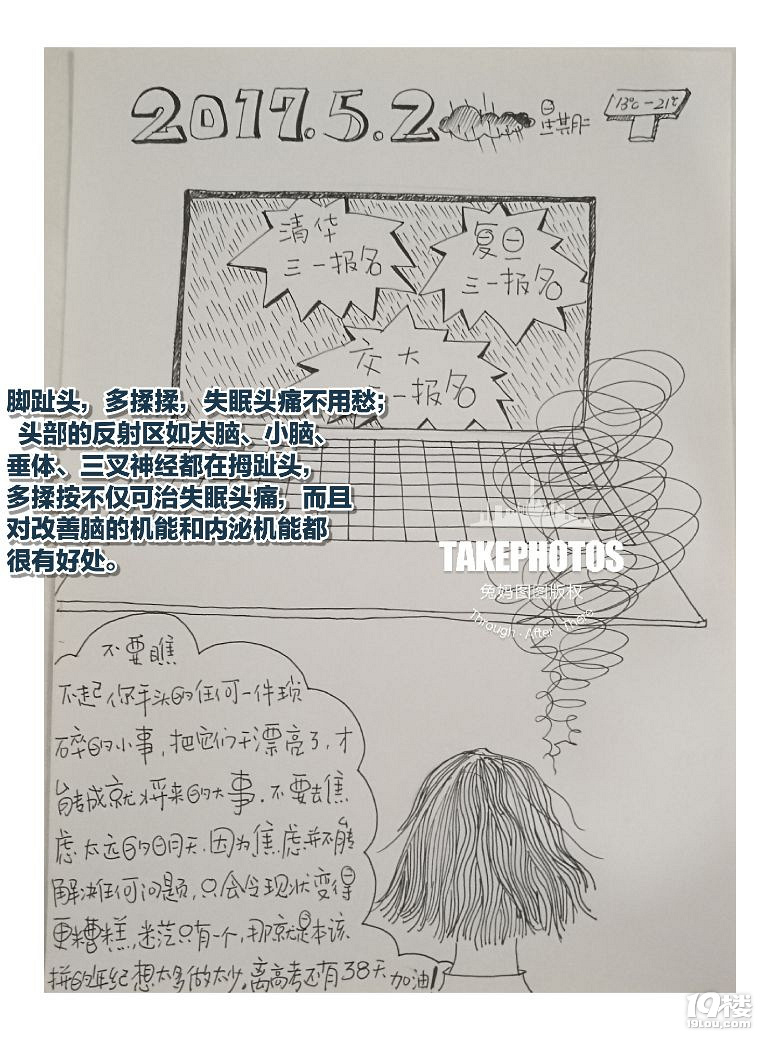 2017.5.2
13℃-21℃
清华
三一报名
复旦
三一报名
交大
一报名
脚趾头，多揉揉，失眠头痛不用愁；
头部的反射区如大脑、小脑、
垂体、三叉神经都在拇趾头，
多揉按不仅可治失眠头痛，而且
对改善脑的机能和内泌机能都
很有好处。
TAKEPHOTOS
兔妈图图版权
Through·After·there
不要瞧
不起你手头的任何一件琐
碎的小事，把它们干漂亮了，才
能成就将来的大事。不要去焦
虑太远的明天，因为焦虑并不能
解决任何问题，只会令现状变得
更糟糕，迷茫只有一个，那就是本该
拼的年纪想太多做太少。离高考还有38天 加油！
19楼
19lou.com